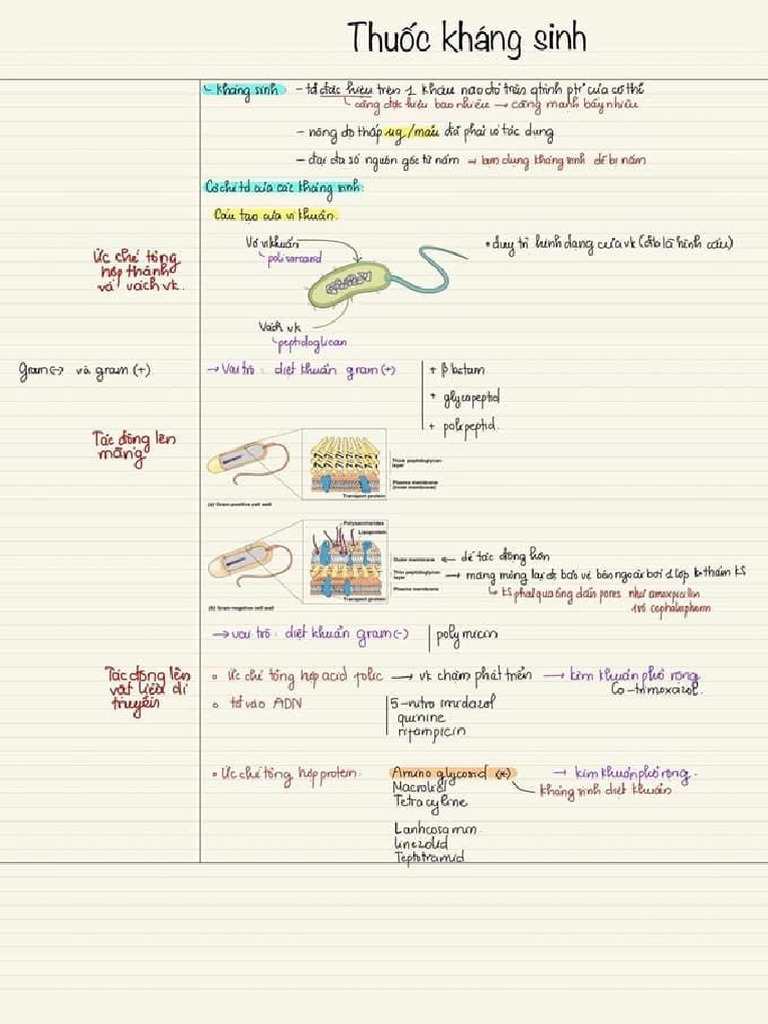 Thuốc kháng sinh
Kháng sinh - tđ đặc hiệu trên 1 khâu nào đó trên qtrình ptr của cơ thể
càng đặc hiệu bao nhiêu → càng mạnh bấy nhiêu
- nồng độ thấp ug/máu đã phải có tác dụng
- đại đa số nguồn gốc từ nấm → lạm dụng kháng sinh dễ bị nấm
Cơ chế tđ của các kháng sinh:
Cấu tạo của vi khuẩn.
Ức chế tổng hợp thành và vách vk.
Vỏ vi khuẩn
polisarcarid
• duy trì hình dạng của vk (đb là hình cầu)
Vách vk
peptidoglican
Gram(-) và gram (+)
→ Vai trò: diệt khuẩn gram (+)
+ β lactam
+ glycopeptid
+ polipeptid.
Tác động lên màng
Thick peptidoglycan layer
Plasma membrane (inner membrane)
Transport protein
(a) Gram-positive cell wall
Polysaccharides
Lipoprotein
Outer membrane ← dễ tác động hơn
Thin peptidoglycan layer → màng mỏng lại đc bảo vệ bên ngoài bởi 1 lớp k thấm KS
Plasma membrane
KS phải qua ống dẫn pores như amoxicilin
và cephalosporin
Transport protein
(b) Gram-negative cell wall
→ vai trò: diệt khuẩn gram(-) polymicin
Tác động lên vật liệu di truyền
• Ức chế tổng hợp acid folic → vk chậm phát triển → kìm khuẩn phổ rộng
Co-trimoxazol.
• tđ vào ADN
5-nitro imidazol
quinine
rifampicin
• Ức chế tổng hợp protein:
Amino glycosid (*) → kìm khuẩn phổ rộng.
Macrolid
kháng sinh diệt khuẩn
Tetracyline
Lanhcosamin
linezolid